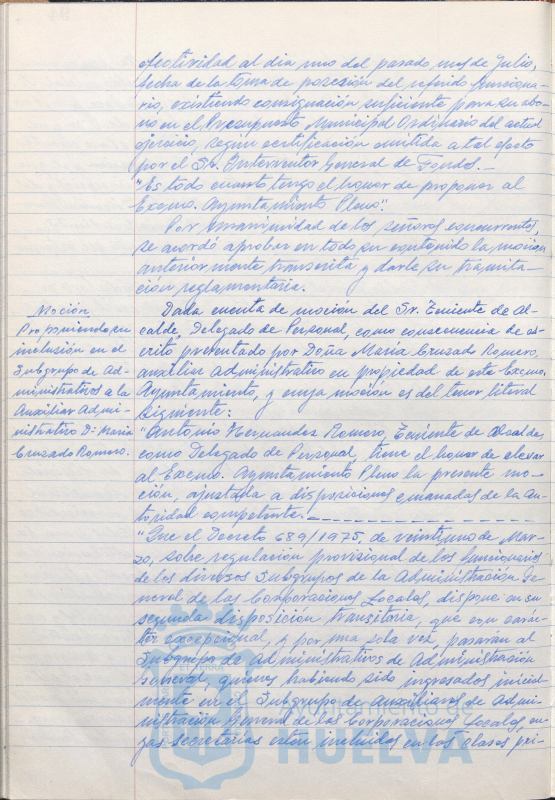 efectividad al dia uno del pasado mes de Julio,
fecha de la toma de posesión del referido funciona-
rio, existiendo consignación suficiente para su abo-
no en el Presupuesto Municipal Ordinario del actual
ejercicio, segun certificación emitida a tal efecto
por el Sr. Interventor General de Fondos.-
"Es todo cuanto tengo el honor de proponer al
Excmo. Ayuntamiento Pleno".
Por unanimidad de los señores concurrentes,
se acordó aprobar en todo su contenido la moción
anteriormente transcrita y darle su tramita-
ción reglamentaria.
Moción
Proponiendo su
inclusión en el
Subgrupo de Ad-
ministrativos a la
Auxiliar Admi-
nistrativo Dª María
Cruzado Romero.
Dada cuenta de moción del Sr. Teniente de Al-
calde, Delegado de Personal, como consecuencia de es-
crito presentado por Doña María Cruzado Romero,
auxiliar administrativo en propiedad de este Excmo.
Ayuntamiento, y cuya moción es del tenor literal
siguiente:
"Antonio Hernandez Romero, Teniente de Alcalde,
como Delegado de Personal, tiene el honor de elevar
al Excmo. Ayuntamiento Pleno la presente mo-
ción, ajustada a disposiciones emanadas de la au-
toridad competente.-
"Que el Decreto 689/1975, de veintiuno de Mar-
zo, sobre regulación provisional de los funcionarios
de los diversos Subgrupos de la Administración Ge-
neral de las Corporaciones Locales, dispone en su
segunda disposición transitoria, que con carác-
ter excepcional, y por una sola vez, pasarán al
Subgrupo de Administrativos de Administración
General, quienes habiendo sido ingresados inicial-
mente en el Subgrupo de Auxiliares de Admi-
nistración General de las Corporaciones Locales cu-
yas secretarías estén incluidas en las clases pri-
HUELVA